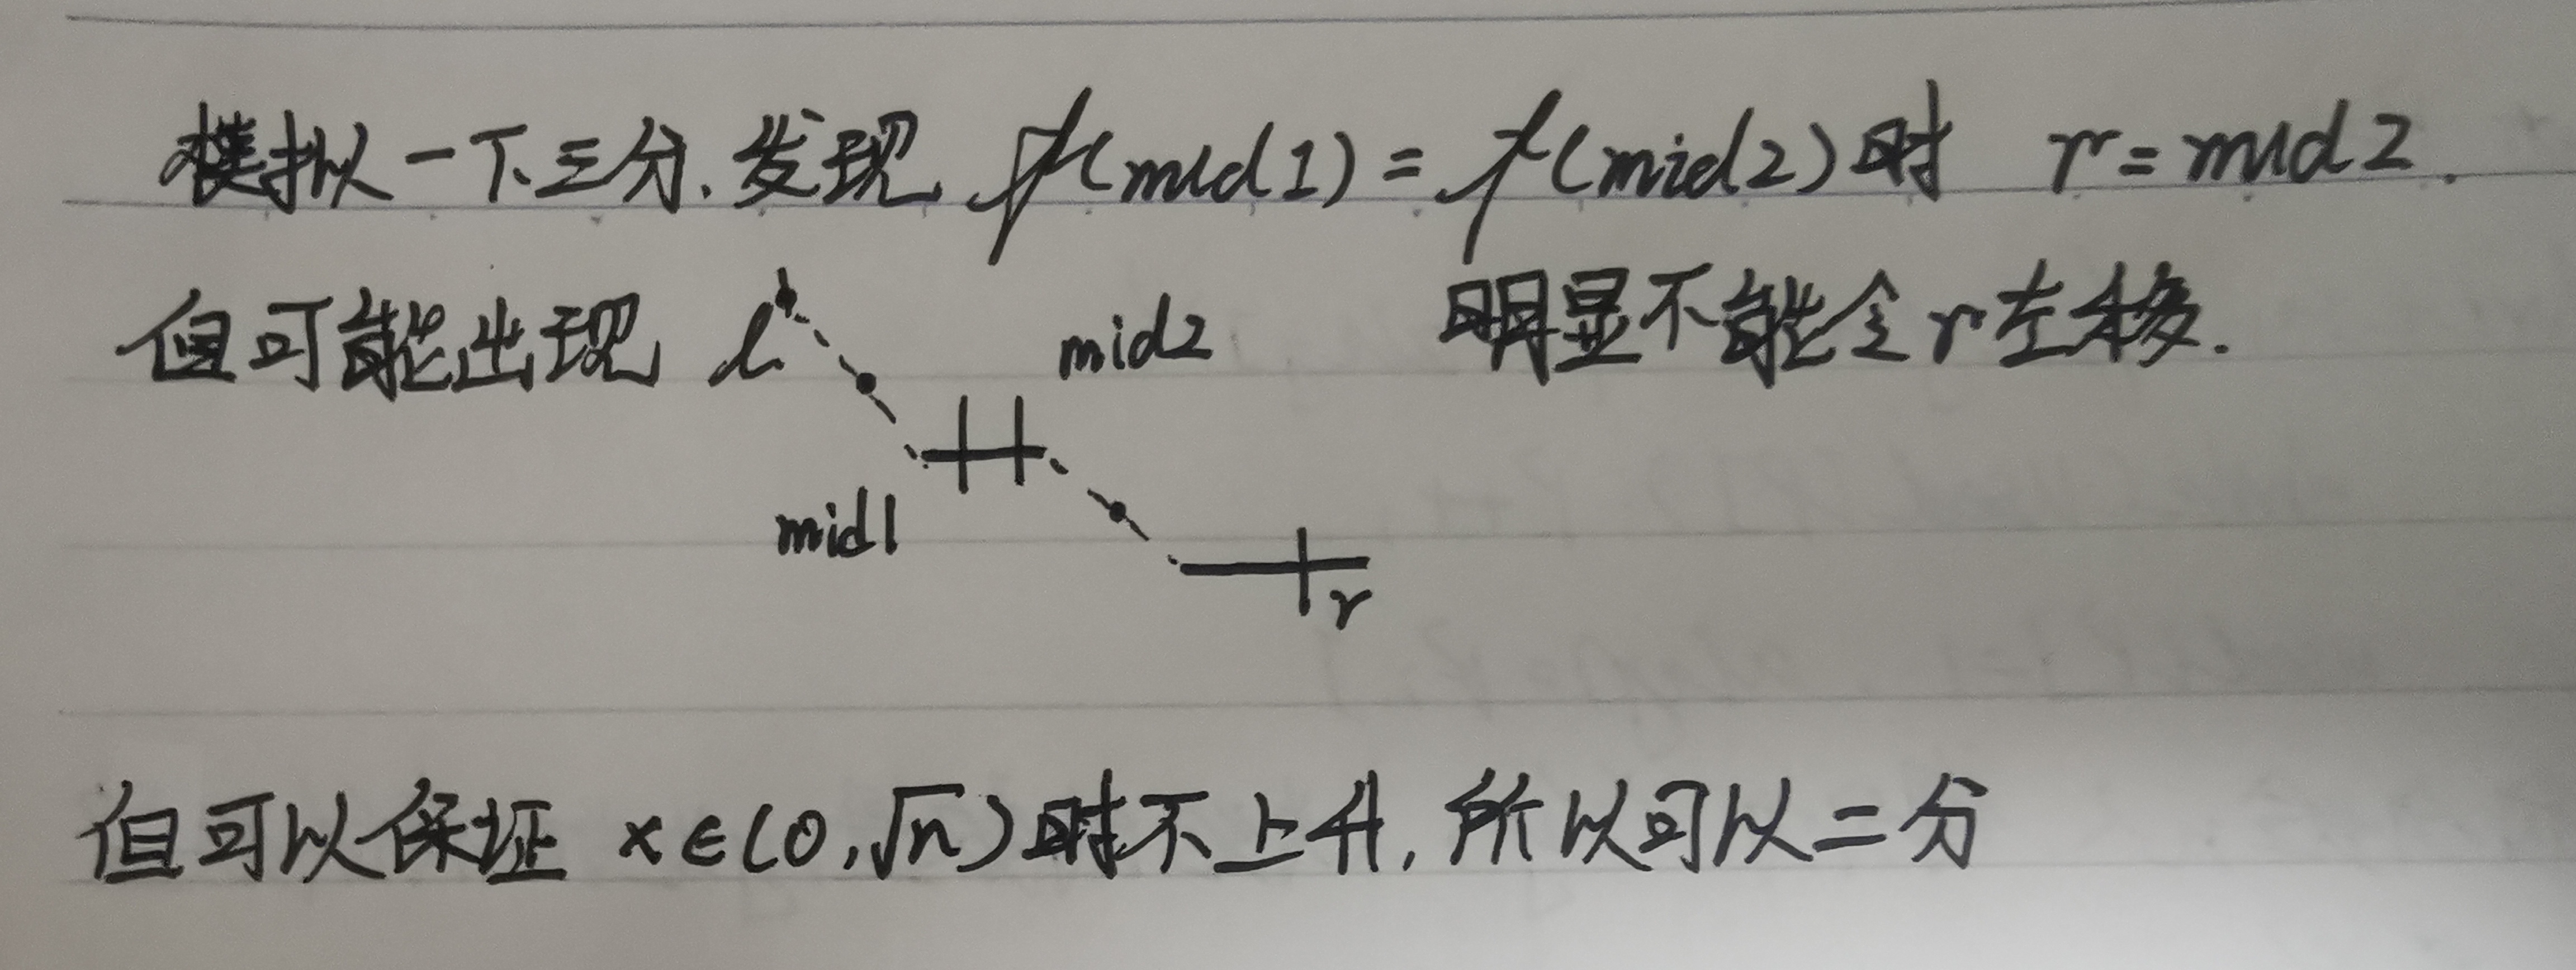 模拟一下三分,发现 f(mid1)=f(mid2)时 r=mid2.
但可能出现 l mid2 明显不能令r左移.
mid1
r
但可以保证 x∈(0,√n)时不上升,所以可以二分